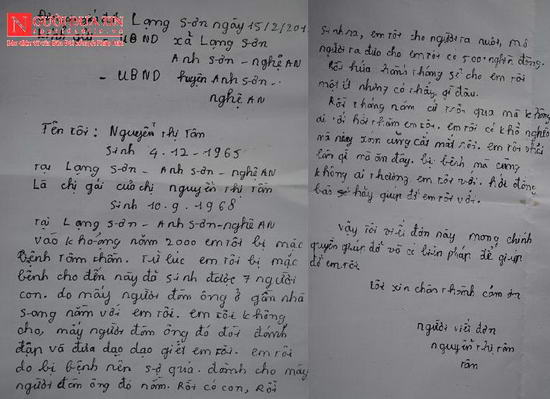 NGƯỜI ĐƯA TIN
Lạng Sơn ngày 15/2/201
UBND xã Lạng Sơn
Anh Sơn - nghệ AN
- UBND huyện Anh Sơn -
nghệ AN
Tên tôi: Nguyễn Thị Tâm
Sinh 4-12-1965
Tại Lạng Sơn - Anh Sơn - nghệ AN
Là chị gái của chị nguyễn thị Tân
Sinh 10.9.1968
Tại Lạng Sơn - Anh Sơn - nghệ AN
vào khoảng năm 2000 em tôi bị mắc
bệnh tâm thần. Từ lúc em tôi bị mắc
bệnh cho đến nay đã sinh được 7 người
con. do mấy người đàn ông ở gần nhà
sang nằm với em tôi. em tôi không
cho, mấy người đàn ông đó đòi đánh
đập và đưa dao dọa giết em tôi. em tôi
do bị bệnh nên sợ quá. đành cho mấy
người đàn ông đó nằm. Rồi có con, Rồi
sinh ra, em tôi cho người ta nuôi, mà
người ta đưa cho em tôi có 500 nghìn đồng.
Rồi hứa hàng tháng sẽ cho em tôi
một ít nhưng có thấy gì đâu.
Rồi tháng năm cứ trôn qua mà không
ai tới hỏi thăm em tôi. em tôi có khổ nghèo
mà này xón cũng cắt mất nốt. em tôi phải
làm gì mà ăn đây. bị bệnh mà cũng
không ai thương em tôi với. hởi đồng
bào hãy giúp đỡ em tôi với.
vậy tôi viết đơn này mong chính
quyền giúp đỡ và có biện pháp để giúp
đỡ em tôi.
tôi xin chân thành cảm ơn
người viết đơn
nguyễn thị tâm
tâm